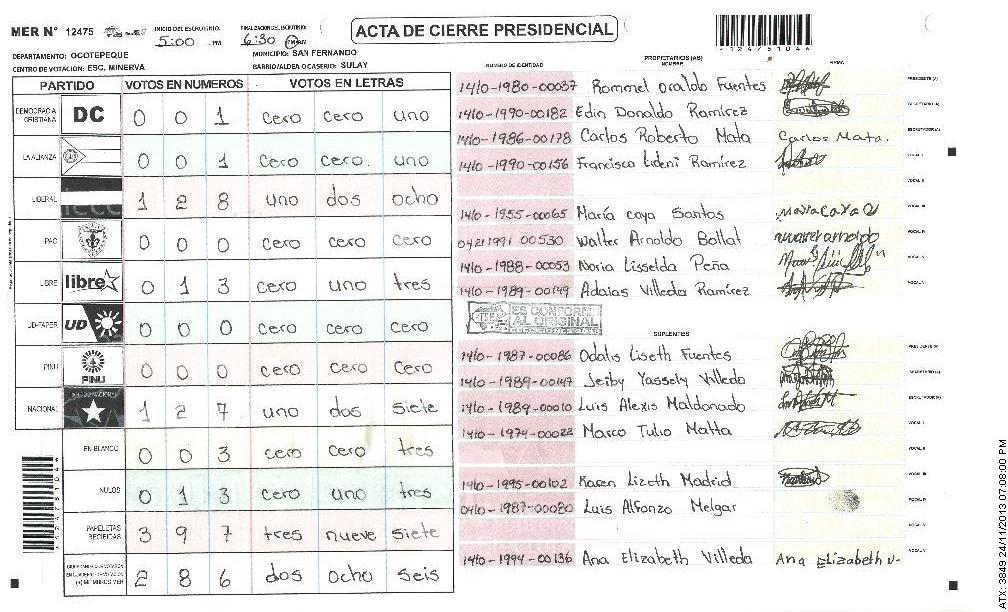 MER N° 12475
INICIO DEL ESCRUTINIO.
5:00 PM
FINALIZACION DEL ESCRUTINIO:
6:30
ACTA DE CIERRE PRESIDENCIAL
DEPARTAMENTO: OCOTEPEQUE
MUNICIPIO: SAN FERNANDO
CENTRO DE VOTACION: ESC. MINERVA
BARRIO/ALDEA O CASERIO: SULAY
PARTIDO VOTOS EN NUMEROS VOTOS EN LETRAS
DEMOCRACIA CRISTIANA DC 0 0 1 cero cero uno
LA ALIANZA 0 0 1 cero cero. uno
LIBERAL 1 2 8 uno dos ocho
PAC 0 0 0 cero cero cero
LIBRE libre 0 1 3 cero uno tres
UD-FAPER UD 0 0 0 cero cero cero
PINU PINU 0 0 0 cero cero cero
NACIONAL 1 2 7 uno dos siete
EN BLANCO 0 0 3 cero cero tres
NULOS 0 1 3 cero uno tres
PAPELETAS RECIBIDAS 3 9 7 tres nueve siete
(+) MIEMBROS MER 2 8 6 dos ocho seis
NUMERO DE IDENTIDAD PROPIETARIOS (AS) NOMBRE FIRMA
1410-1980-00037 Rommel Oraldo Fuentes PRESIDENTE (A)
1410-1990-00182 Edin Donaldo Ramírez SECRETARIO (A)
1410-1986-00178 Carlos Roberto Mata Carlos Mata. ESCRUTADOR (A)
1410-1990-00156 Francisca Lideni Ramírez VOCAL I
VOCAL II
1410-1955-00065 María Caya Santos VOCAL III
0421 1991 00530 Walter Arnoldo Bollat VOCAL IV
1410-1988-00053 Noria Lisselda Peña VOCAL V
1410-1989-00149 Adaias Villeda Ramírez VOCAL VI
TSE
ES CONFORME
AL ORIGINAL
ELECCIONES 2013
SUPLENTES
1410-1987-00086 Odalis Liseth Fuentes PRESIDENTE (A)
1410-1989-00147 Jeiby Yassely Villeda SECRETARIO (A)
1410-1989-00010 Luis Alexis Maldonado ESCRUTADOR (A)
1410-1974-00022 Marco Tulio Matta VOCAL I
VOCAL II
1410-1995-00102 Karen Lizeth Madrid VOCAL III
0410-1987-00080 Luis Alfonzo Melgar VOCAL IV
VOCAL V
1410-1994-00136 Ana Elizabeth Villeda Ana Elizabeth V- VOCAL VI
ATX: 3849 24/11/2013 07:08:00 PM